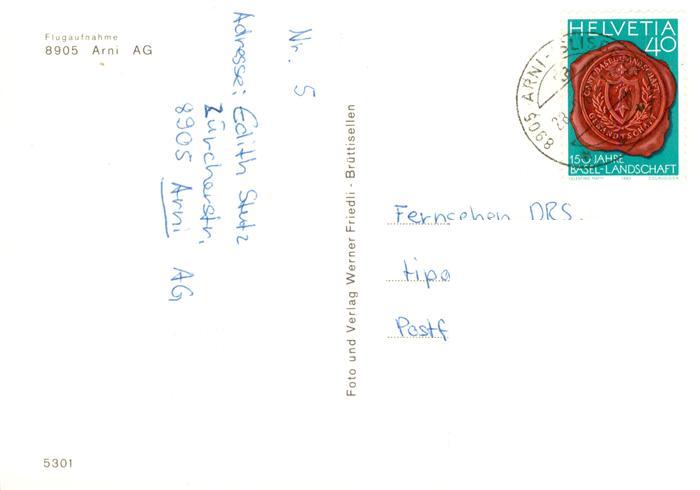 Flugaufnahme
8905 Arni AG
Nr. 5
Adresse: Edith Stutz
Zürcherstr.
8905 Arni AG
Foto und Verlag Werner Friedli - Brüttisellen
HELVETIA
40
150 JAHRE
BASEL-LANDSCHAFT
8905 ARNI-ISLIS
Fernsehen DRS.
tipo
Postf
5301